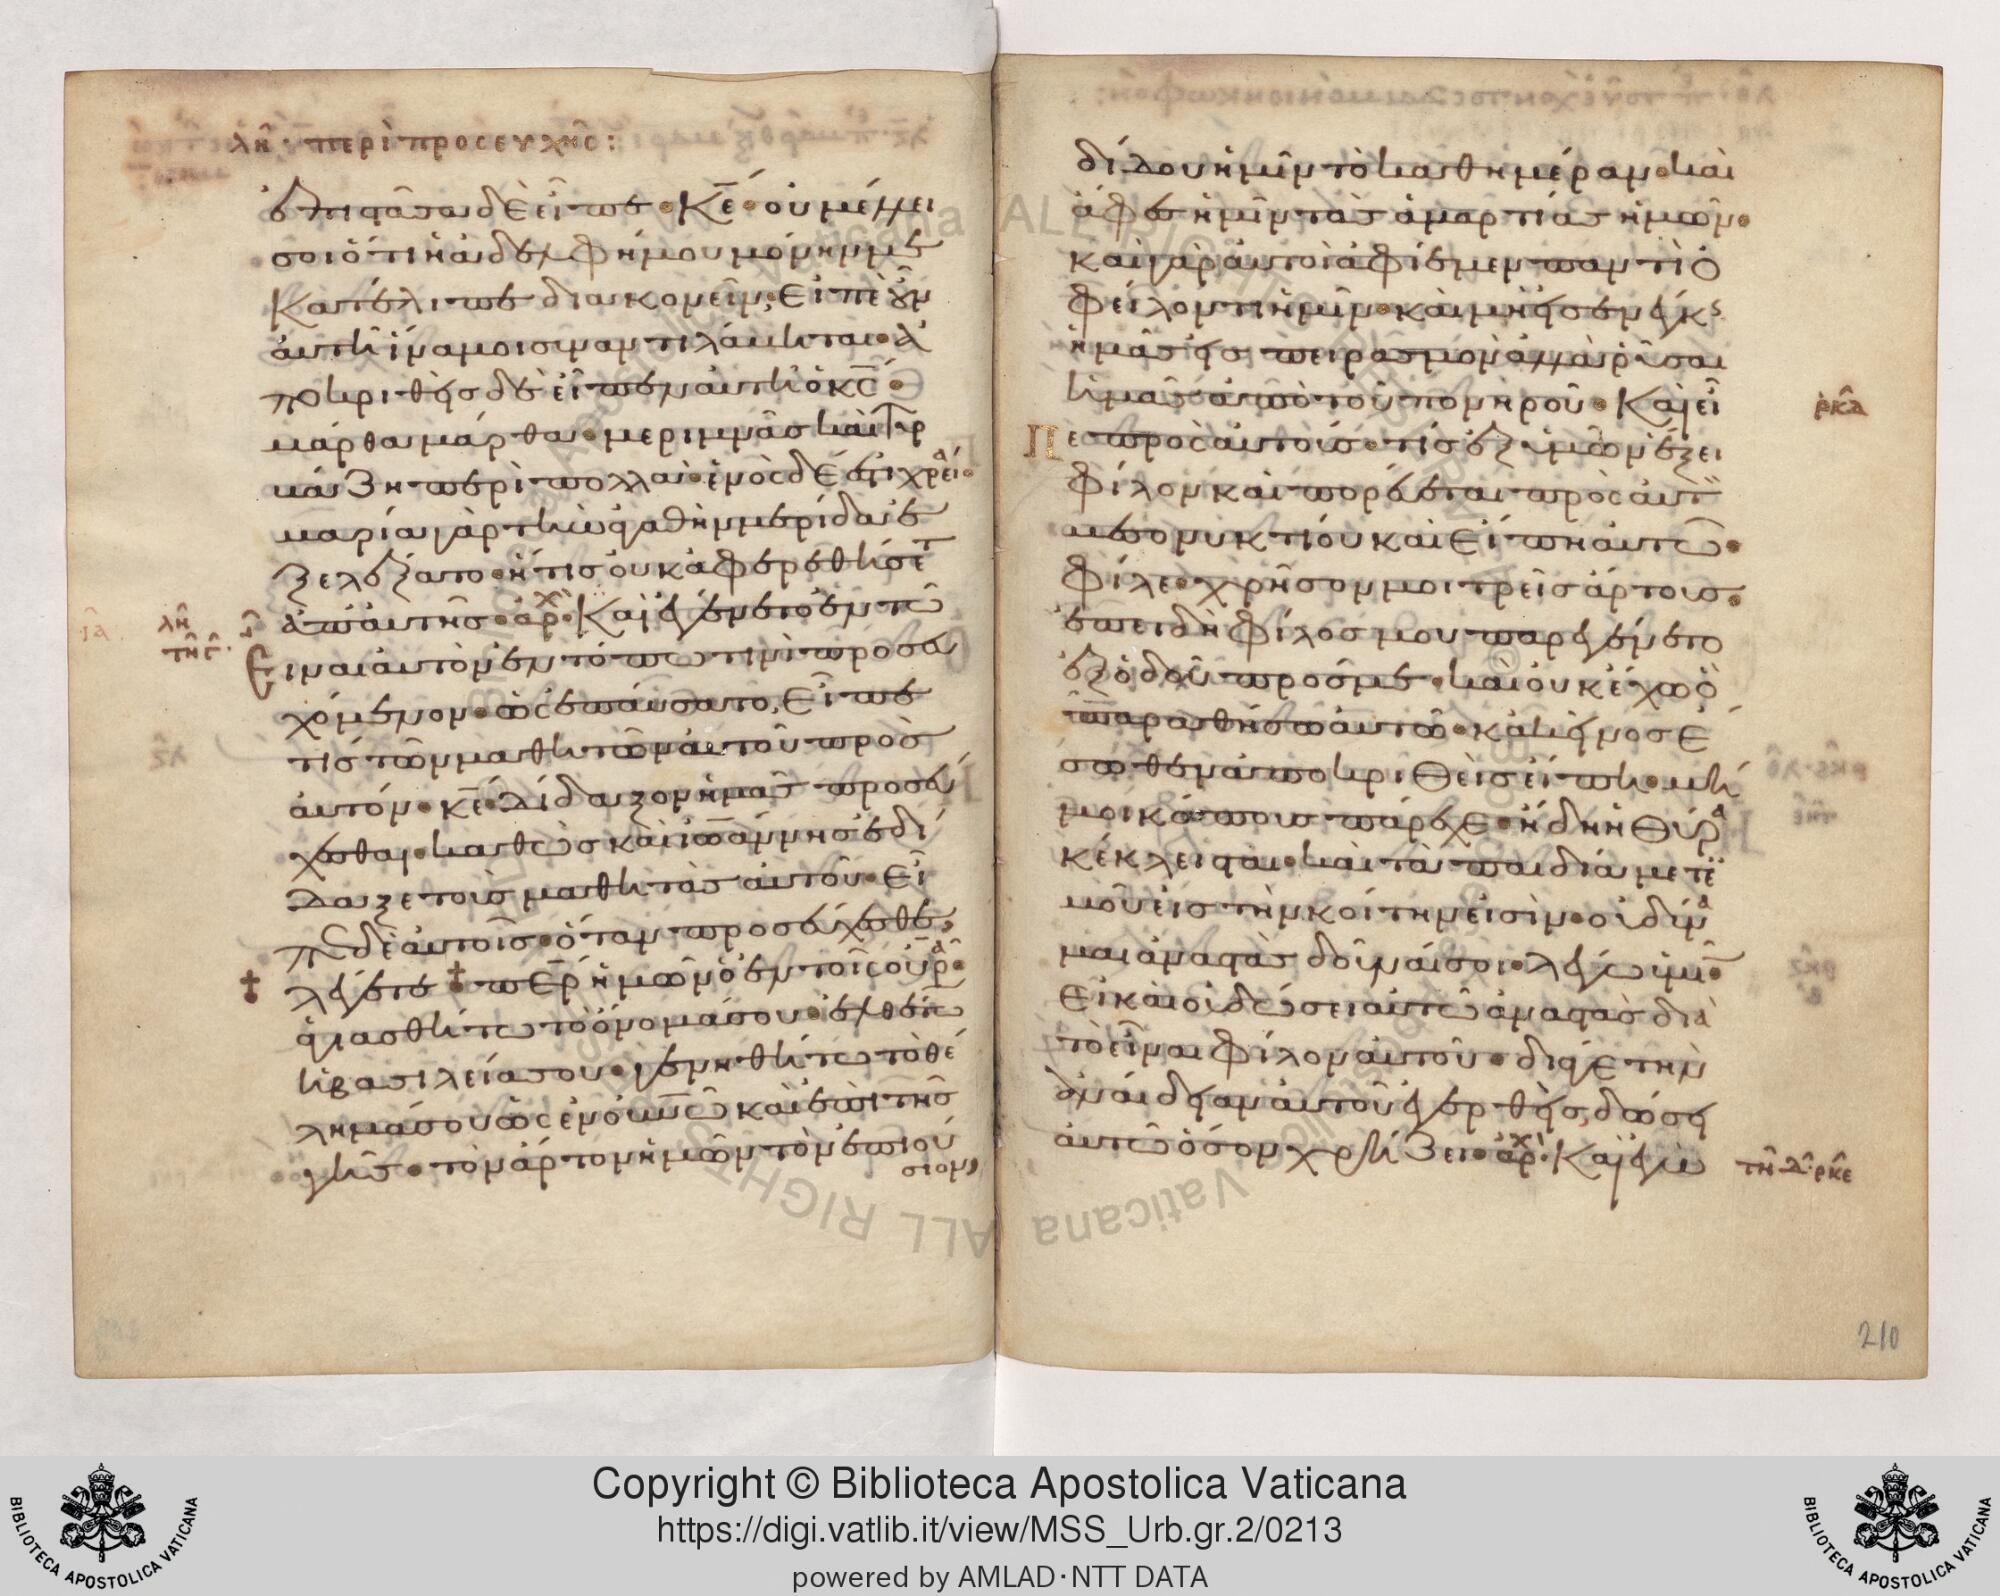 λη̑· περὶ προσευχῆς:
ἐπιστᾶσα δὲ εἶπε· κ̅ε̅· οὐ μέλλει
σοι ὅτι ἡ ἀδελφή μου μόνην με
κατέλιπε διακονεῖν; εἰπὲ οὖν
αὐτῆ ἵνα μοι συναντιλάβηται· ἀ
ποκριθεὶς δὲ εἶπεν αὐτῆ ὁ κ̅ς̅·
μάρθα μάρθα· μεριμνᾶς καὶ τυρ
βάζη περὶ πολλά· ἑνὸς δέ ἐστι χρεί·
μαρία γὰρ τὴν ἀγαθὴν μερίδα ἐ
ξελέξατο· ἥτις οὐκ ἀφερεθήσετ
ἀπ αὐτῆς· ἀρχ· Καὶ ἐγένετο ἐν τῶ
λη̑
τη̑ ς̑·
εἶναι αὐτὸν ἐν τόπω τινὶ προσευ
χόμενον· ὡς ἐπαύσατο, εἶπε
τίς τῶν μαθητῶν αὐτοῦ πρὸς
αὐτόν· κ̅ε̅· δίδαξον ἡμᾶς προσεύ
χεσθαι· καθὼς καὶ ἰωάννης ἐδί
δαξε τοὺς μαθητὰς αὐτοῦ· εἶ
πε δὲ αὐτοῖς· ὅταν προσεύχησθε,
λέγετε· π̅ε̅ρ̅ ἡμῶν ὁ ἐν τοῖς οὐρα·
ἁγιασθήτω τὸ ὄνομά σου· ἐλθέτω
ἡ βασιλεία σου· γενηθήτω τὸ θέ
λημά σου ὡς ἐν ο̅υ̅ν̅ω̅ καὶ ἐπὶ τῆς
γῆς· τὸν ἄρτον ἡμῶν τὸν ἐπιού
σιον,
δίδου ἡμῖν τὸ καθ ημέραν· καὶ
ἄφες ἡμῖν τὰς ἁμαρτίας ἡμῶν·
καὶ γὰρ αὐτοὶ ἀφίεμεν παντὶ ὀ
φείλοντι ἡμῖν· καὶ μὴ εἰσενέγκς
ἡμᾶς εἰς πειρασμὸν ἀλλὰ ρῦσαι
ἡμᾶς ἀπὸ τοῦ πονηροῦ· Καὶ εἶ
ρκ̑δ
πε πρὸς αὐτούς· τίς ἐξ ὑμῶν ἕξει
φίλον καὶ πορεύεται πρὸς αὐτ
μεσονυκτίου καὶ εἴπη αὐτῶ·
φίλε· χρῆσον μοι τρεῖς ἄρτους·
ἐπειδὴ φίλος μου παρεγένετο
ἐξ ὁδοῦ πρός με· καὶ οὐκ ἔχω ὃ
παραθήσω αὐτῶ· κακεῖνος ἔ
σωθεν ἀποκριθεὶς εἴπη· μή
μοι κόπους πάρεχε· ἤδη ἡ θύρα
κέκλεισται· καὶ τὰ παιδία μετ
μοῦ εἰς τὴν κοίτην εἰσὶν· οὐ δύνα
μαι ἀναστὰς δοῦναί σοι· λέγω ὑμῖ·
εἰ καὶ οὐ δώσει αὐτῶ ἀναστὰς διὰ
τὸ εἶναι φίλον αὐτοῦ· διά γε τὴν
ἀναίδειαν αὐτοῦ ἐγερθεὶς, δώσει
αὐτῶ ὅσον χρήζει· ἀρχ· Καὶ ἐγὼ
τη̑ δ̑· ρκ̑ε
210
Copyright © Biblioteca Apostolica Vaticana
https://digi.vatlib.it/view/MSS_Urb.gr.2/0213
powered by AMLAD·NTT DATA
BIBLIOTECA APOSTOLICA VATICANA
BIBLIOTECA APOSTOLICA VATICANA